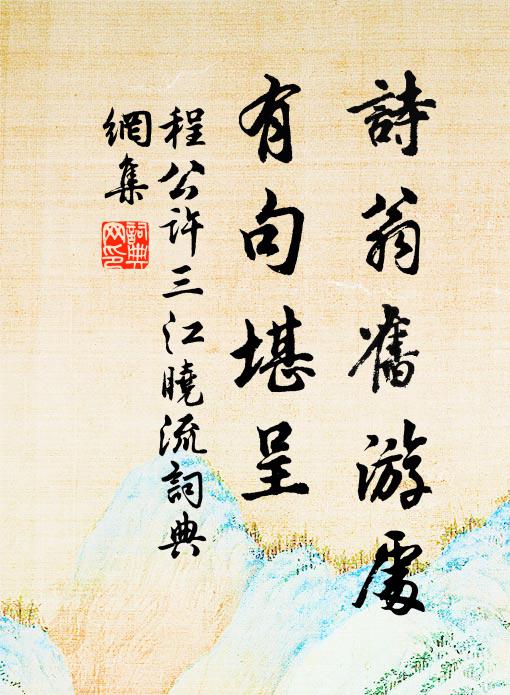 詩翁舊游處
有句堪呈
程公許三江曉流詞典
網集
詞典
网印